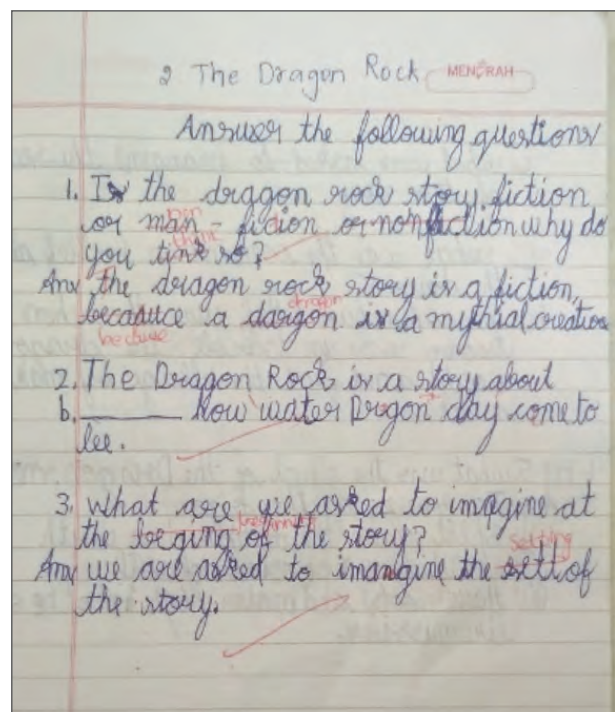 2 The Dragon Rock MENORAH
Answer the following questions
1. Is the dragon rock story fiction
or man - fiction or nonfiction why do
non
you tink so?
think
Ans the dragon rock story is a fiction,
dragon
becaduce a dargon is a mythial creation
because
2. The Dragon Rock is a story about
b. ______ how water Drgon day come to
lee.
3. What are we asked to imagine at
the beging of the story?
beginning
setting
Ans we are asked to imangine the sett of
the story.